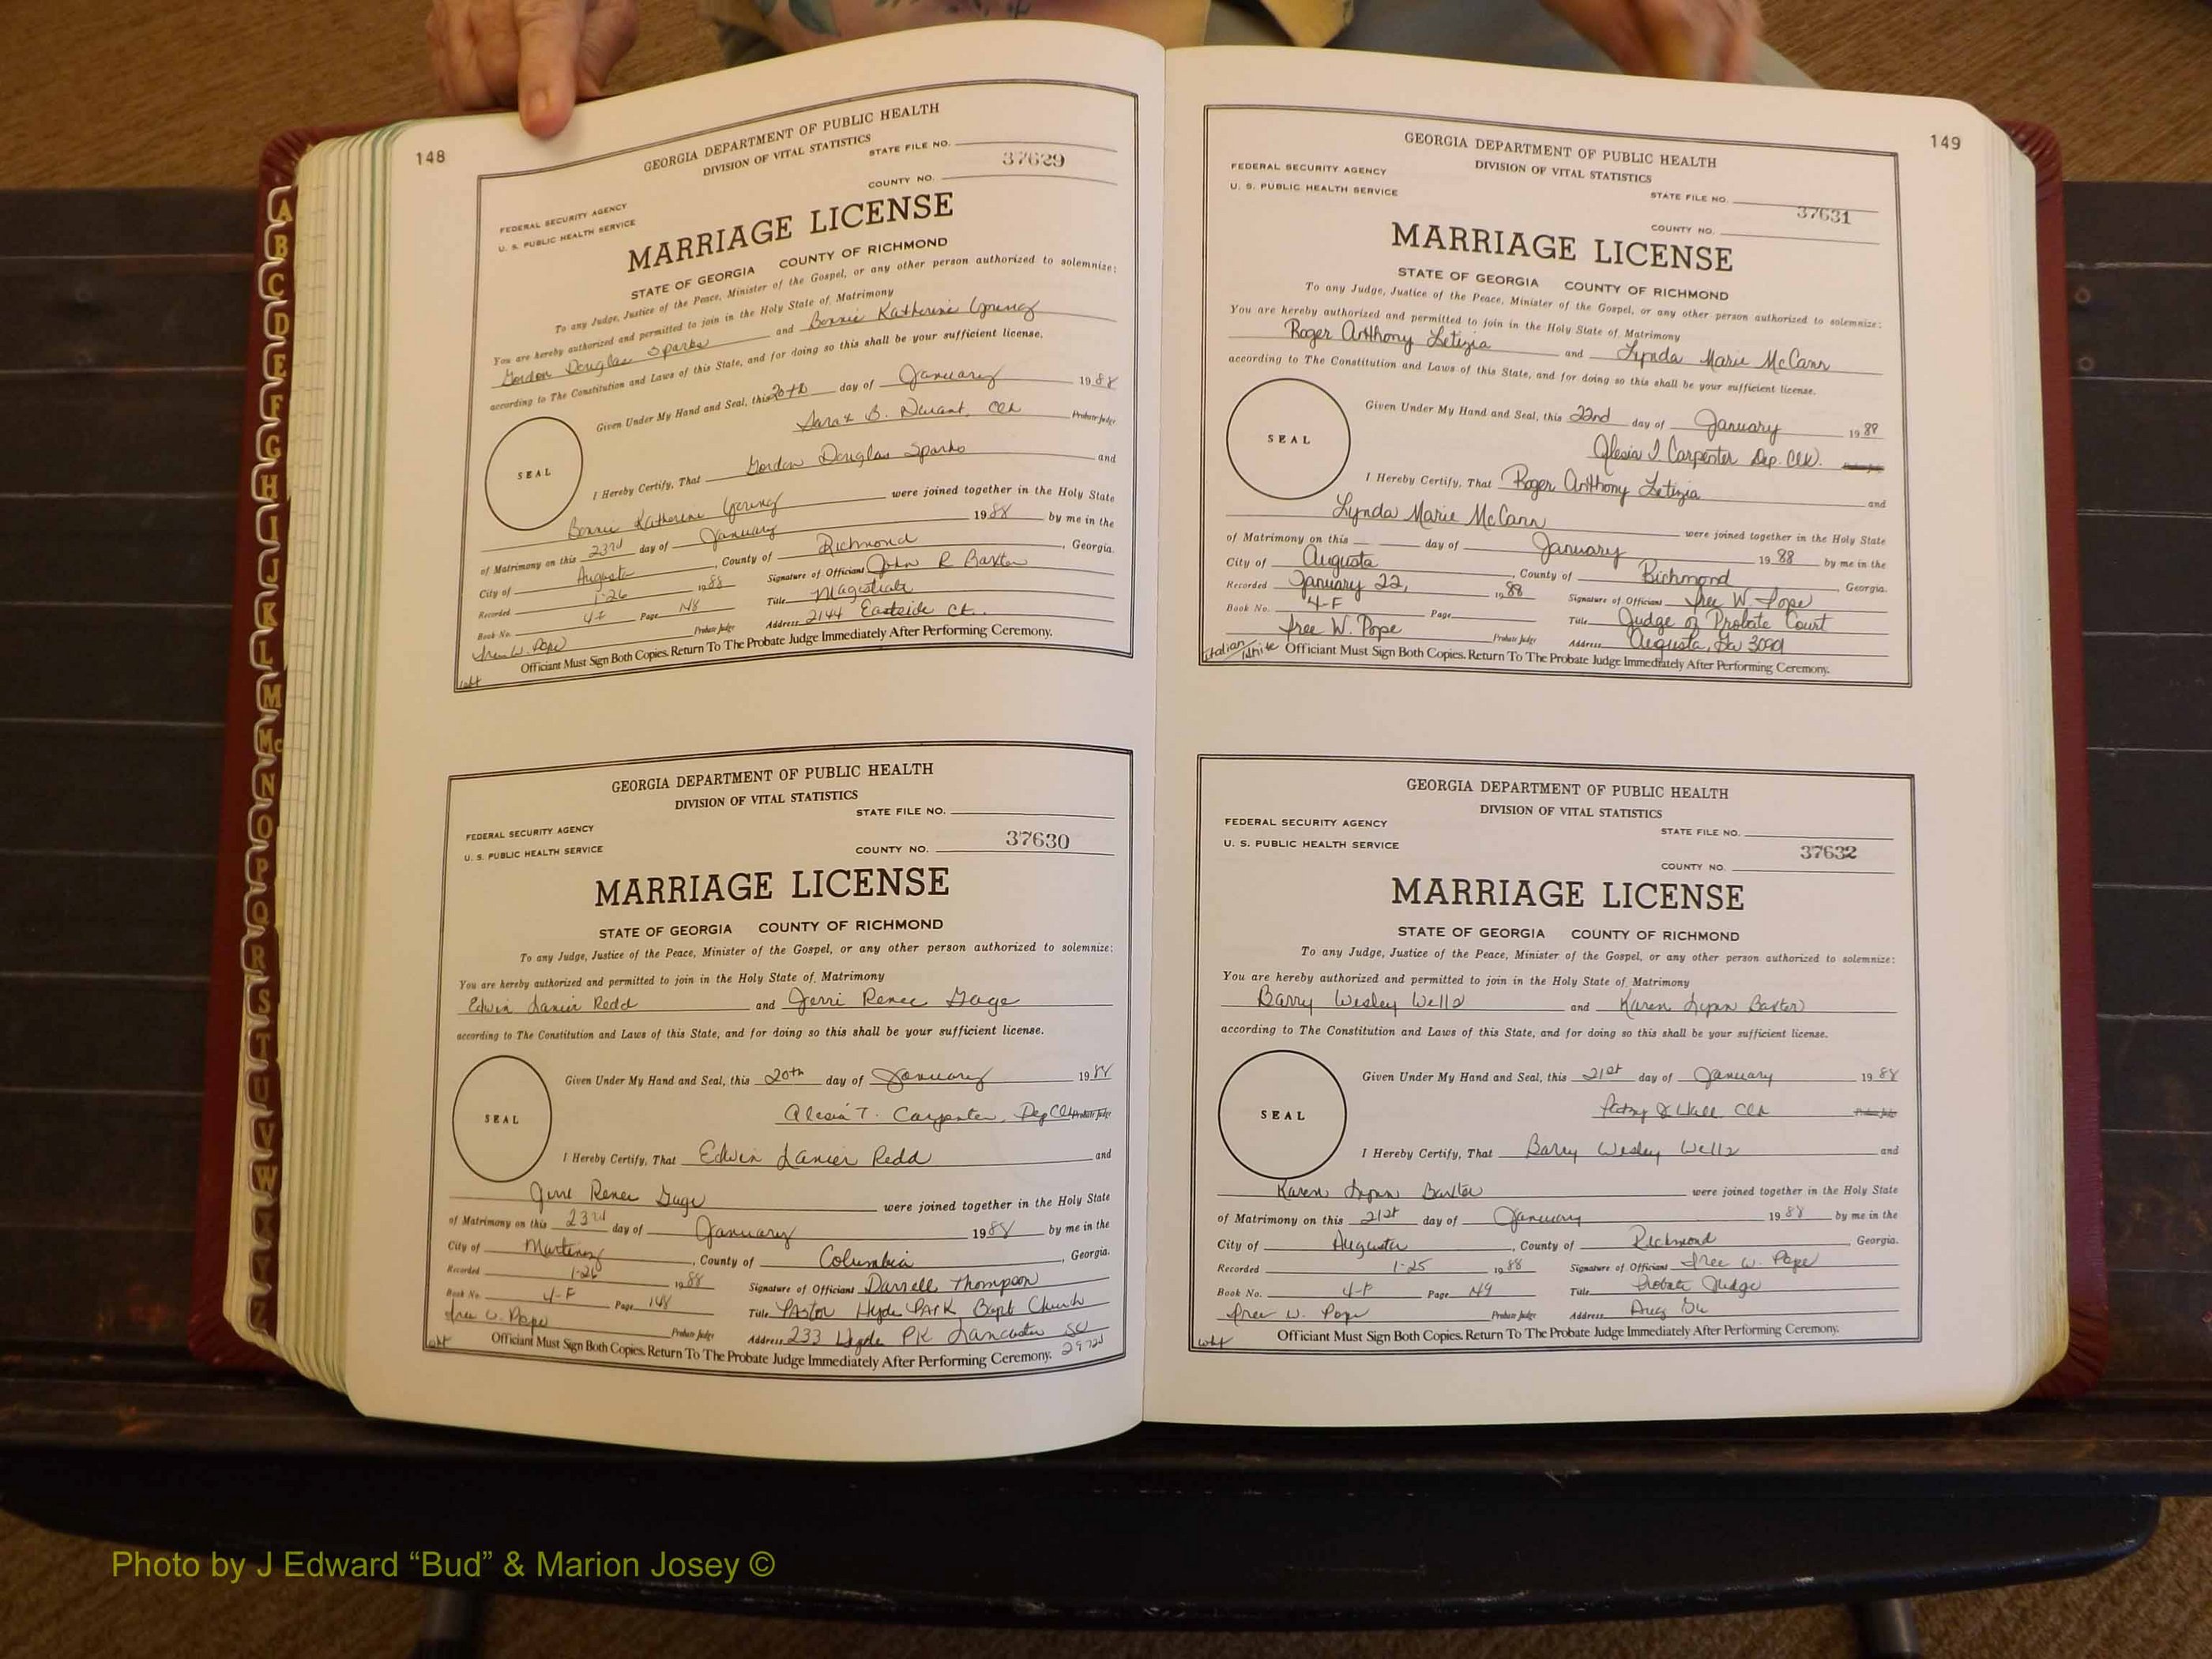 148
GEORGIA DEPARTMENT OF PUBLIC HEALTH
DIVISION OF VITAL STATISTICS
STATE FILE NO.
37629
COUNTY NO.
FEDERAL SECURITY AGENCY
U. S. PUBLIC HEALTH SERVICE
MARRIAGE LICENSE
STATE OF GEORGIA COUNTY OF RICHMOND
To any Judge, Justice of the Peace, Minister of the Gospel, or any other person authorized to solemnize:
You are hereby authorized and permitted to join in the Holy State of Matrimony
Gordon Douglas Sparks and Bonnie Katherine Young
according to The Constitution and Laws of this State, and for doing so this shall be your sufficient license.
Given Under My Hand and Seal, this 20th day of January 1988
B. Clk Probate Judge
SEAL
I Hereby Certify, That Gordon Douglas Sparks and
Bonnie Katherine Young were joined together in the Holy State
of Matrimony on this 23rd day of January 1988 by me in the
City of Augusta, County of Richmond, Georgia.
Recorded 1-26 1988 Signature of Officiant John R Baxter
Book No. 4-F Page 148 Title Magistrate
Iree W. Pope Probate Judge Address 2144 Eastside Ct.
Officiant Must Sign Both Copies. Return To The Probate Judge Immediately After Performing Ceremony.
wht
GEORGIA DEPARTMENT OF PUBLIC HEALTH
DIVISION OF VITAL STATISTICS
STATE FILE NO.
FEDERAL SECURITY AGENCY
U. S. PUBLIC HEALTH SERVICE
COUNTY NO. 37630
MARRIAGE LICENSE
STATE OF GEORGIA COUNTY OF RICHMOND
To any Judge, Justice of the Peace, Minister of the Gospel, or any other person authorized to solemnize:
You are hereby authorized and permitted to join in the Holy State of Matrimony
Edwin Lanier Redd and Jerri Renee Gage
according to The Constitution and Laws of this State, and for doing so this shall be your sufficient license.
Given Under My Hand and Seal, this 20th day of January 1988
Alesia T. Carpenter, Dep Clk Probate Judge
SEAL
I Hereby Certify, That Edwin Lanier Redd and
Jerri Renee Gage were joined together in the Holy State
of Matrimony on this 23rd day of January 1988 by me in the
City of Martinez, County of Columbia, Georgia.
Recorded 1-26 1988 Signature of Officiant Darrell Thompson
Book No. 4-F Page 148 Title Pastor Hyde Park Bapt Church
Iree W. Pope Probate Judge Address 233 Hyde PK Lancaster SC
29720
Officiant Must Sign Both Copies. Return To The Probate Judge Immediately After Performing Ceremony.
wht
149
GEORGIA DEPARTMENT OF PUBLIC HEALTH
DIVISION OF VITAL STATISTICS
FEDERAL SECURITY AGENCY
U. S. PUBLIC HEALTH SERVICE
STATE FILE NO.
37631
COUNTY NO.
MARRIAGE LICENSE
STATE OF GEORGIA COUNTY OF RICHMOND
To any Judge, Justice of the Peace, Minister of the Gospel, or any other person authorized to solemnize:
You are hereby authorized and permitted to join in the Holy State of Matrimony
Roger Anthony Letizia and Lynda Marie McCann
according to The Constitution and Laws of this State, and for doing so this shall be your sufficient license.
Given Under My Hand and Seal, this 22nd day of January 1988
Alesia T Carpenter Dep. Clk.
SEAL
I Hereby Certify, That Roger Anthony Letizia and
Lynda Marie McCann were joined together in the Holy State
of Matrimony on this day of January 1988 by me in the
City of Augusta, County of Richmond, Georgia.
Recorded January 22, 1988 Signature of Officiant Iree W. Pope
Book No. 4-F Page Title Judge of Probate Court
Iree W. Pope Probate Judge Address Augusta, Ga 30901
Italian/White
Officiant Must Sign Both Copies. Return To The Probate Judge Immediately After Performing Ceremony.
GEORGIA DEPARTMENT OF PUBLIC HEALTH
DIVISION OF VITAL STATISTICS
FEDERAL SECURITY AGENCY
U. S. PUBLIC HEALTH SERVICE
STATE FILE NO.
37632
COUNTY NO.
MARRIAGE LICENSE
STATE OF GEORGIA COUNTY OF RICHMOND
To any Judge, Justice of the Peace, Minister of the Gospel, or any other person authorized to solemnize:
You are hereby authorized and permitted to join in the Holy State of Matrimony
Barry Wesley Wells and Karen Lynn Baxter
according to The Constitution and Laws of this State, and for doing so this shall be your sufficient license.
Given Under My Hand and Seal, this 21st day of January 1988
Wall Clk
SEAL
I Hereby Certify, That Barry Wesley Wells and
Karen Lynn Baxter were joined together in the Holy State
of Matrimony on this 21st day of January 1988 by me in the
City of Augusta, County of Richmond, Georgia.
Recorded 1-25 1988 Signature of Officiant Iree W. Pope
Book No. 4-F Page 149 Title Probate Judge
Iree W. Pope Probate Judge Address Aug Ga
wht
Officiant Must Sign Both Copies. Return To The Probate Judge Immediately After Performing Ceremony.
A
B
C
D
E
F
G
H
I
J
K
L
M
Mc
N
O
P
Q
R
S
T
U
V
W
X
Y
Z
Photo by J Edward “Bud” & Marion Josey ©